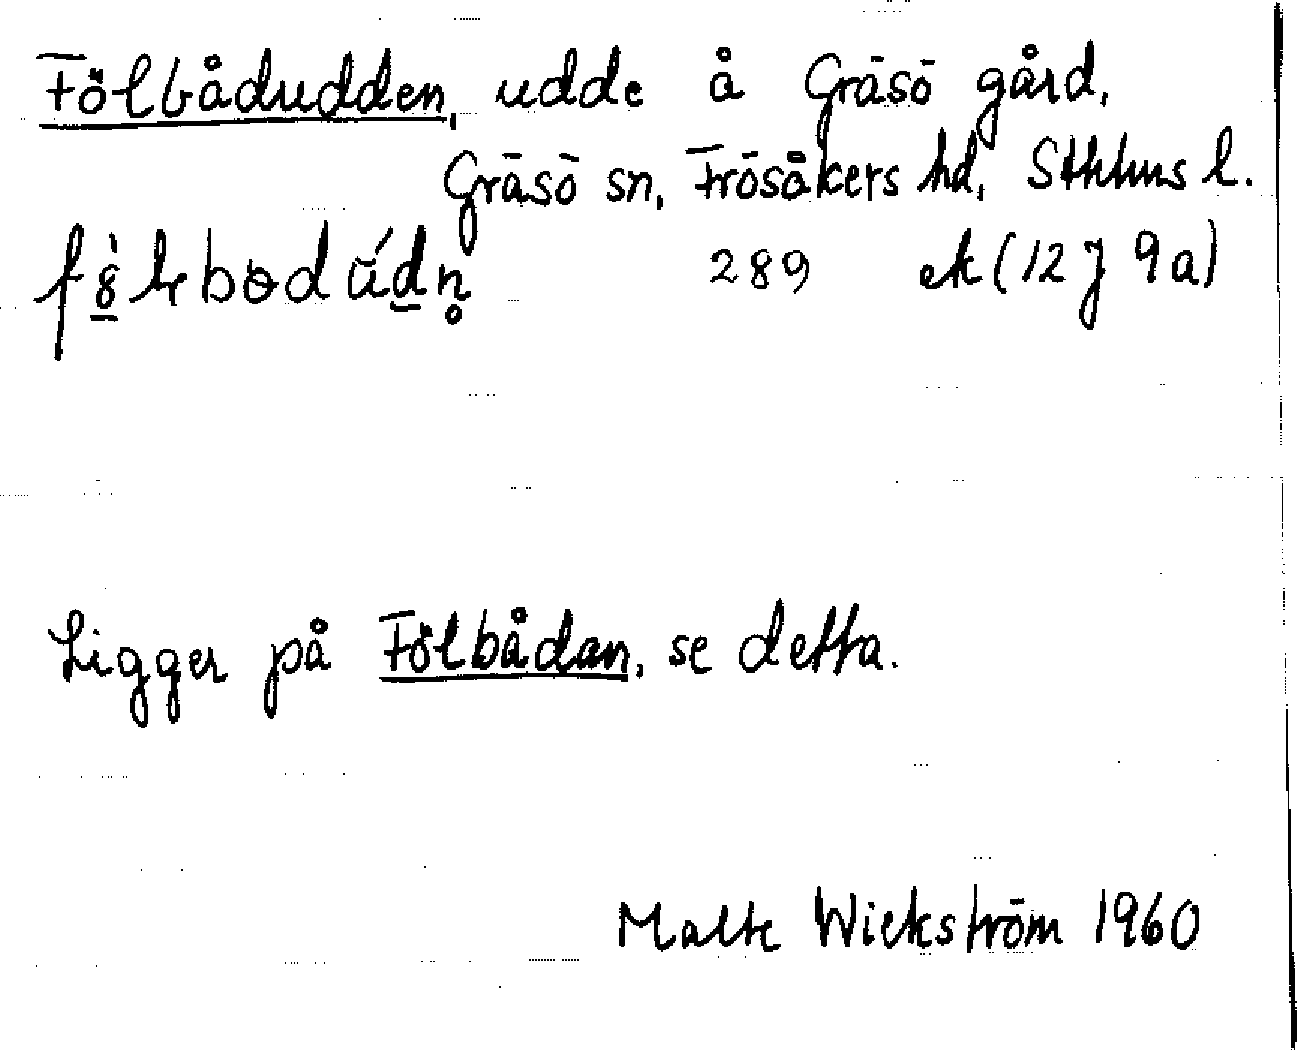 Fölbådudden, udde å Gräsö gård,
Gräsö sn, Frösåkers hd, Sthlms l.
289 ek (12 J 9a)
Ligger på Fölbådan, se detta.
Malte Wickström 1960